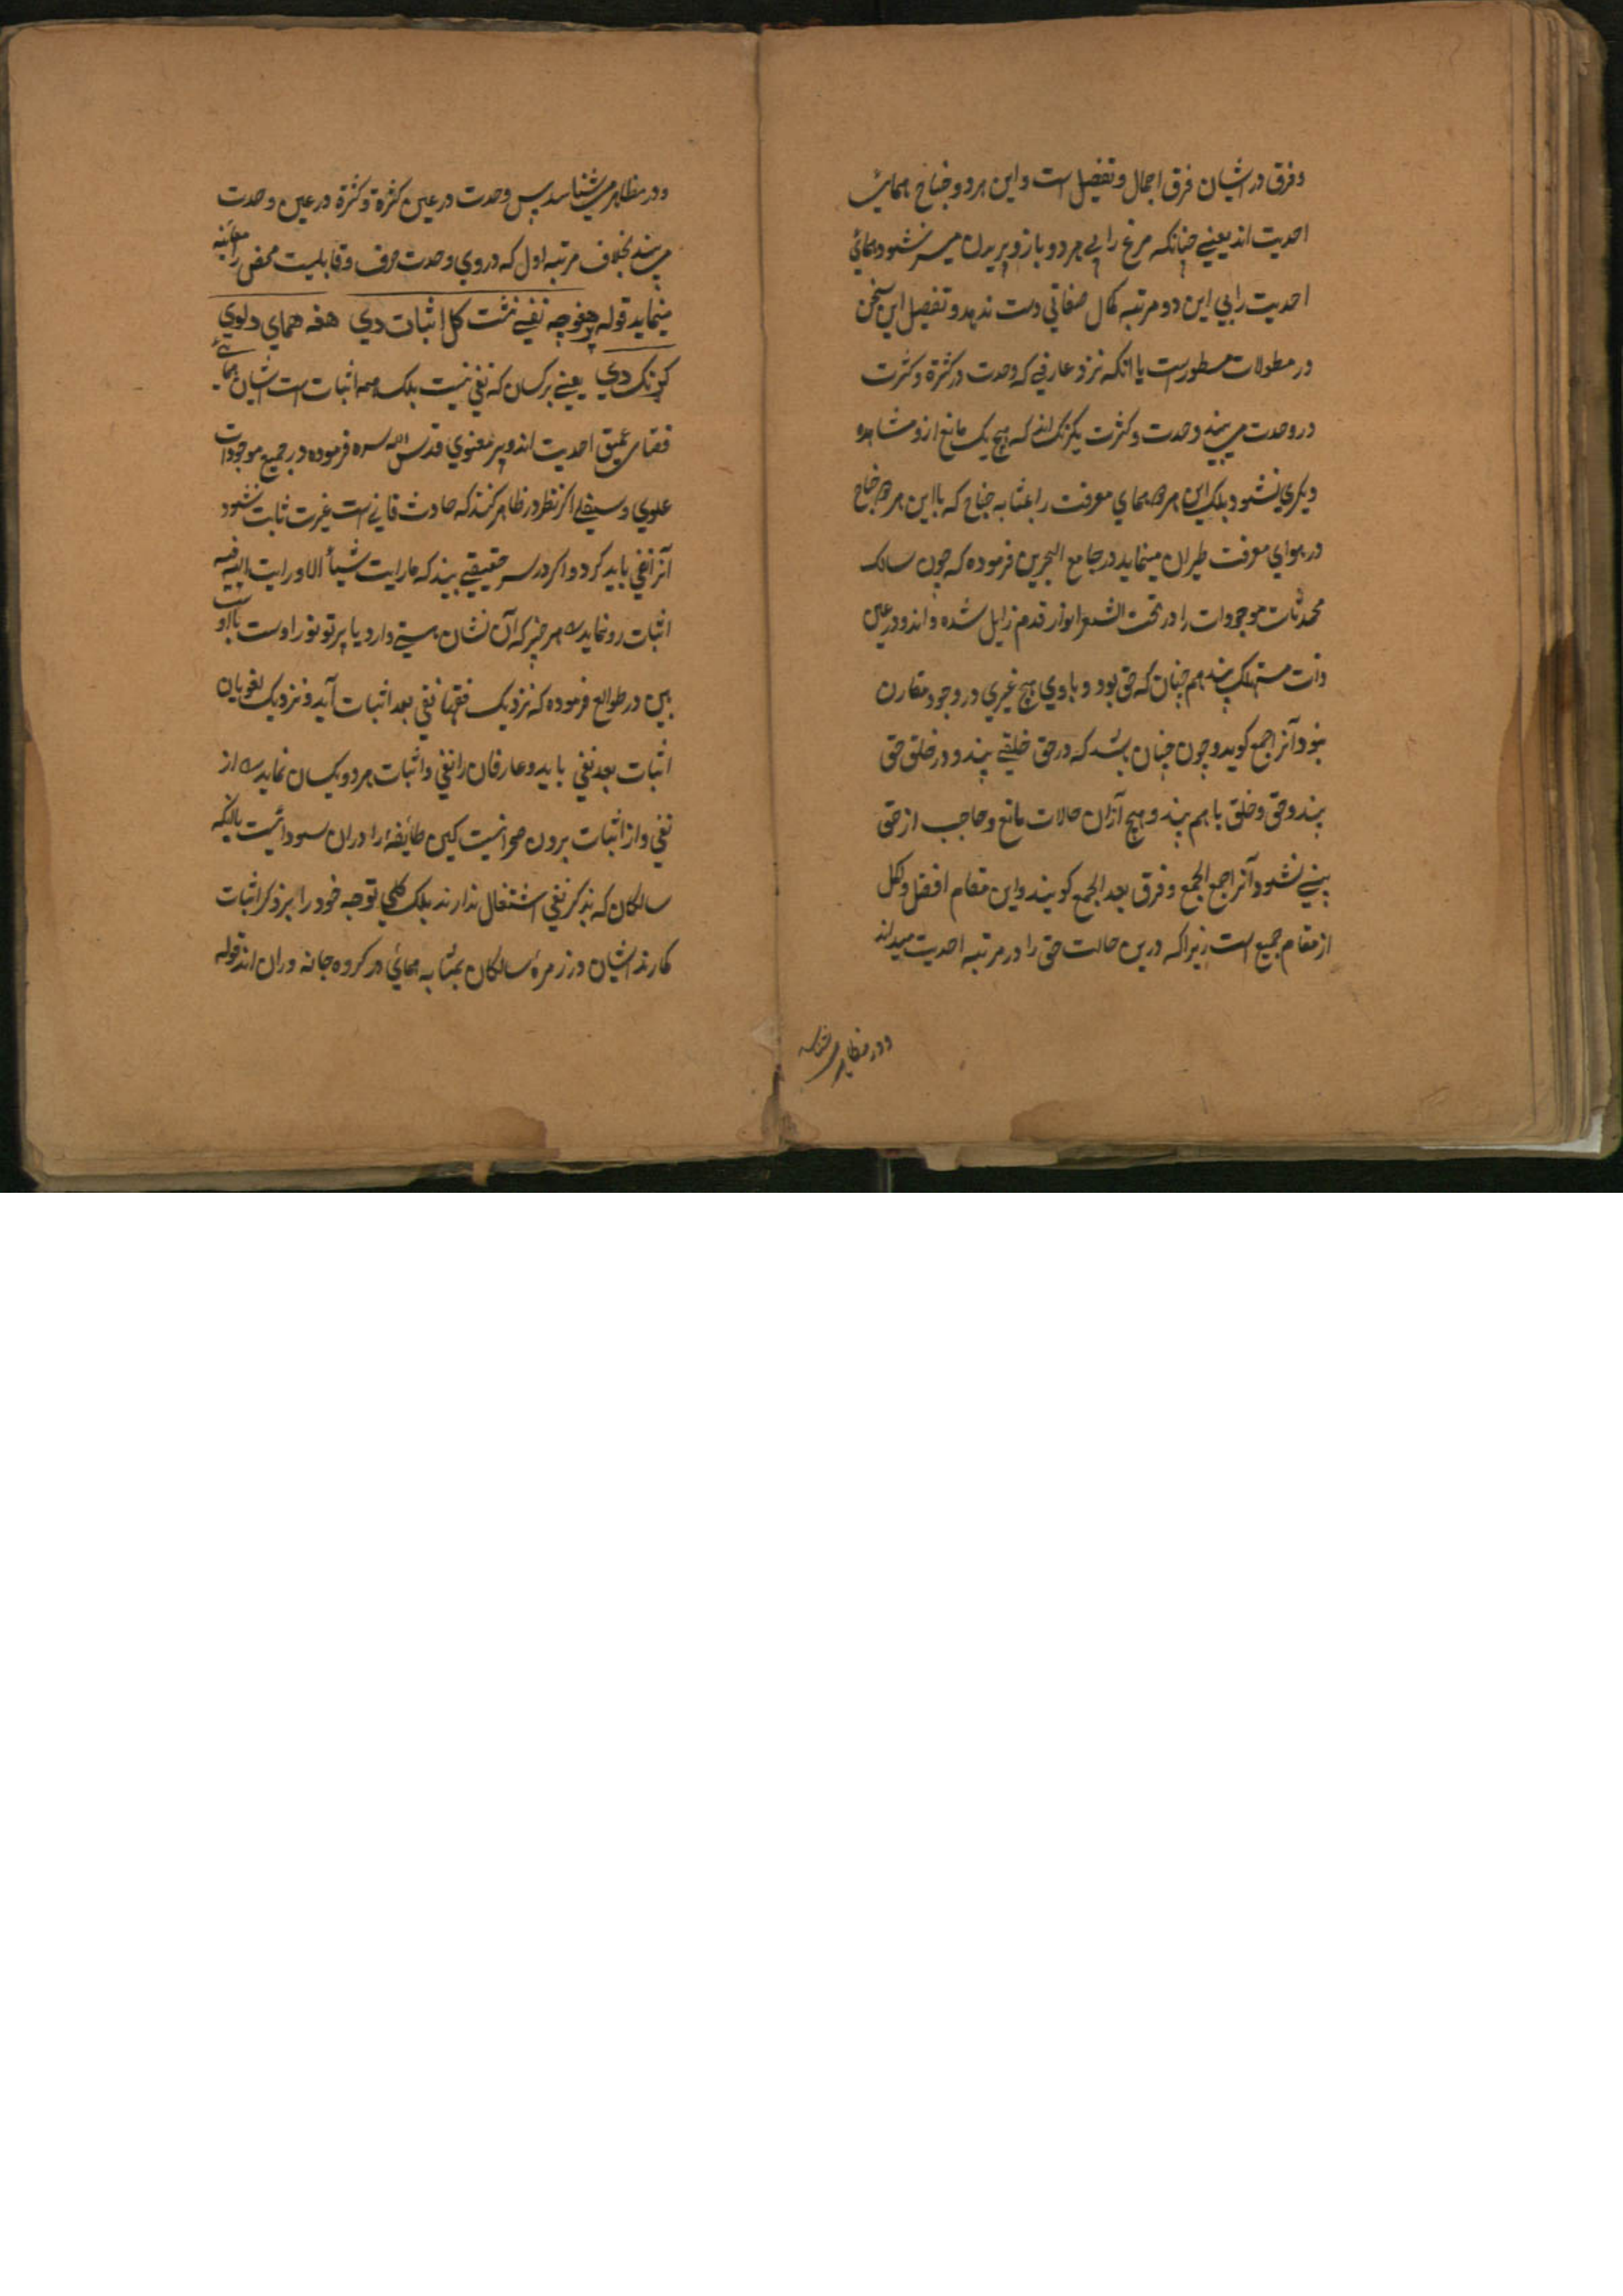 وفرق در ایشان فرق اجمال وتفضیل است واین هردو جناح همائی
احدیت اند یعنی چنانکه مرغ را بی هر دو بازو پریدن میسر نشود همائی
احدیت را بی این دو مرتبه کمال صفاتی دست ندهد وتفصیل این سخن
در مطولات مسطور است یا آنکه نزد عارفی که وحدت در کثرة وکثرت
در وحدت می بیند وحدت وکثرت یکرنک اند که هیچ یک مانع از مشاهده
دیکری نشود بلکه این هر دو همای معرفت را بمثابه جناح که با این هر دو جناح
در هوای معرفت طیران مینماید در جامع البحرین فرموده که چون سالک
محدثات موجودات را در تحت الشعاع انوار قدم زایل شده داند و در عین
ذات مستهلک بیند هم چنان که حق بود و با وی هیچ غیری در وجود مقارن
نبود آنرا جمع کوید و چون چنان باشد که در حق خلقی بیند و در خلق حق
بیند وحق وخلق با هم بیند و هیچ از ان حالات مانع وحاجب از حق
بینی نشود آنرا جمع الجمع وفرق بعد الجمع کویند واین مقام افضل واکمل
از مقام جمیع است زیرا که درین حالت حق را در مرتبه احدیت میداند
ودر مظاهر می شناسد
ودر مظاهر می شناسد پس وحدت در عین کثرة وکثرة در عین وحدت
می بیند بخلاف مرتبه اول که در وی وحدت صرف وقابلیت محض را معاینه
مینماید قوله هغو چه نفی نشت کل اثبات دي هغه همای د لوي
کونک دي یعنی برکسان که نفی نیست بلکه همه اثبات است ایشان همائی
فضای عمیق احدیت اند و پیر معنوي قدس الله سره فرموده در جمیع موجودات
علوي وسفلي اکر نظر در ظاهر کنند که حادث فانی است غیرت ثابت نشود
آنرا نفی باید کرد و اکر در سر حقیقی بیند که ما رایت شیأ الا ورایت الله فیه
اثبات رو نماید هر چیز که آن نشان هستی دارد یا پرتو نور اوست یا اوست
ببین در طوالع فرموده که نزدیک فقها نفی بعد اثبات آید و نزدیک لغویان
اثبات بعد نفی باید و عارفان را نفی واثبات هر دو یکسان نماید از
نفی و از اثبات برون صحرائیست کین طایفهٔ را در ان سودائیست یا آنکه
سالکان که بذکر نفی اشتغال ندارند بلکه کلی توجه خود را بر ذکر اثبات
کمارند ایشان در زمرهٔ سالکان بمثابه همائی در کروه جانه وران اند قوله